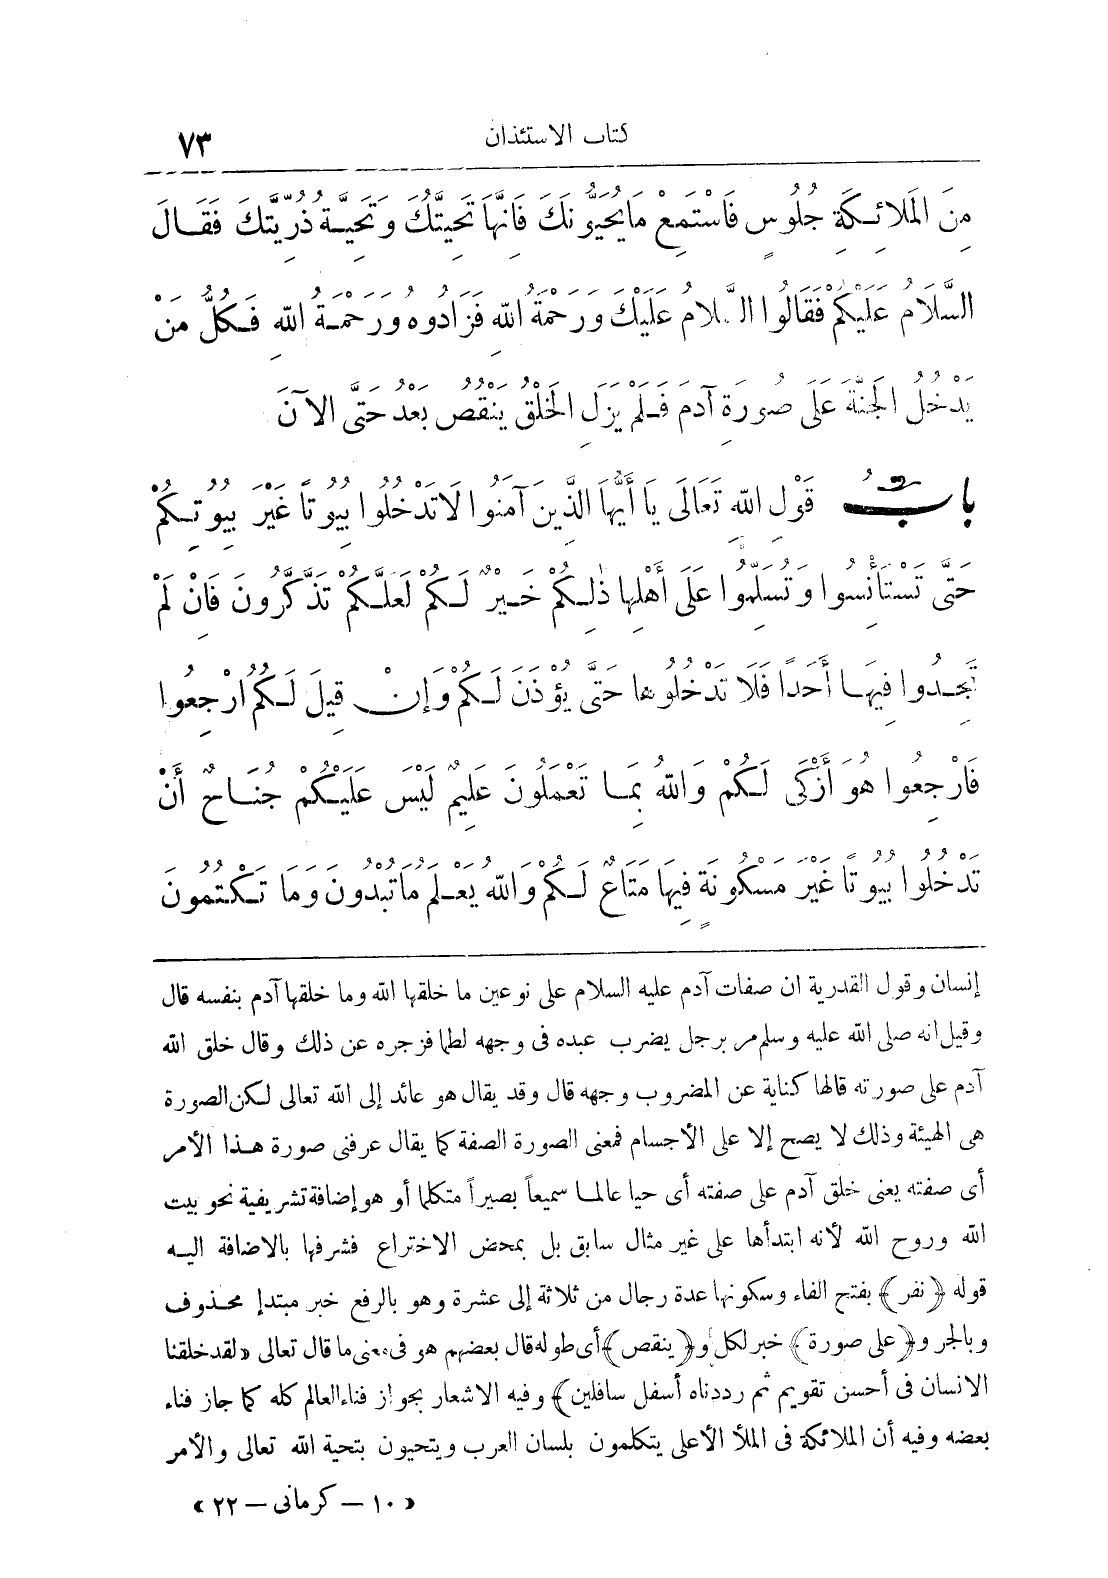 كتاب الاستئذان ٧٣
مِنَ الْمَلَائِكَةِ جُلُوسٍ فَاسْتَمِعْ مَا يُحَيُّونَكَ فَانَّهَا تَحِيَّتُكَ وَتَحِيَّةُ ذُرِّيَّتِكَ فَقَالَ
السَّلَامُ عَلَيْكُمْ فَقَالُوا السَّلَامُ عَلَيْكَ وَرَحْمَةُ اللهِ فَزَادُوهُ وَرَحْمَةُ اللهِ فَكُلُّ مَنْ
يَدْخُلُ الْجَنَّةَ عَلَى صُورَةِ آدَمَ فَلَمْ يَزَلِ الْخَلْقُ يَنْقُصُ بَعْدُ حَتَّى الآنَ
بابُ قَوْلِ اللهِ تَعَالَى يَا أَيُّهَا الَّذِينَ آمَنُوا لَا تَدْخُلُوا بُيُوتًا غَيْرَ بُيُوتِكُمْ
حَتَّى تَسْتَأْنِسُوا وَتُسَلِّمُوا عَلَى أَهْلِهَا ذٰلِكُمْ خَيْرٌ لَكُمْ لَعَلَّكُمْ تَذَكَّرُونَ فَانْ لَمْ
تَجِدُوا فِيهَا أَحَدًا فَلَا تَدْخُلُوهَا حَتَّى يُؤْذَنَ لَكُمْ وَإِنْ قِيلَ لَكُمُ ارْجِعُوا
فَارْجِعُوا هُوَ أَزْكَى لَكُمْ وَاللهُ بِمَا تَعْمَلُونَ عَلِيمٌ لَيْسَ عَلَيْكُمْ جُنَاحٌ أَنْ
تَدْخُلُوا بُيُوتًا غَيْرَ مَسْكُونَةٍ فِيهَا مَتَاعٌ لَكُمْ وَاللهُ يَعْلَمُ مَا تُبْدُونَ وَمَا تَكْتُمُونَ
إنسان وقول القدرية ان صفات آدم عليه السلام على نوعين ما خلقها الله وما خلقها آدم بنفسه قال
وقيل انه صلى الله عليه وسلم مر برجل يضرب عبده فى وجهه لطما فزجره عن ذلك وقال خلق الله
آدم على صورته قالها كناية عن المضروب وجهه قال وقد يقال هو عائد إلى الله تعالى لكن الصورة
هى الهيئة وذلك لا يصح إلا على الأجسام فمعنى الصورة الصفة كما يقال عرفنى صورة هذا الأمر
أى صفته يعنى خلق آدم على صفته أى حيا عالما سميعاً بصيراً متكلما أو هو إضافة تشريفية نحو بيت
الله وروح الله لأنه ابتدأها على غير مثال سابق بل بمحض الاختراع فشرفها بالاضافة اليه
قوله ﴿نفر﴾ بفتح الفاء وسكونها عدة رجال من ثلاثة إلى عشرة وهو بالرفع خبر مبتدإ محذوف
وبالجر و﴿على صورة﴾ خبر لكل و﴿ينقص﴾ أى طوله قال بعضهم هو فى معنى ما قال تعالى «لقد خلقنا
الانسان فى أحسن تقويم ثم رددناه أسفل سافلين﴾ وفيه الاشعار بجواز فناء العالم كله كما جاز فناء
بعضه وفيه أن الملائكة فى الملأ الأعلى يتكلمون بلسان العرب ويتحيون بتحية الله تعالى والأمر
«١٠ – كرمانى – ٢٢»